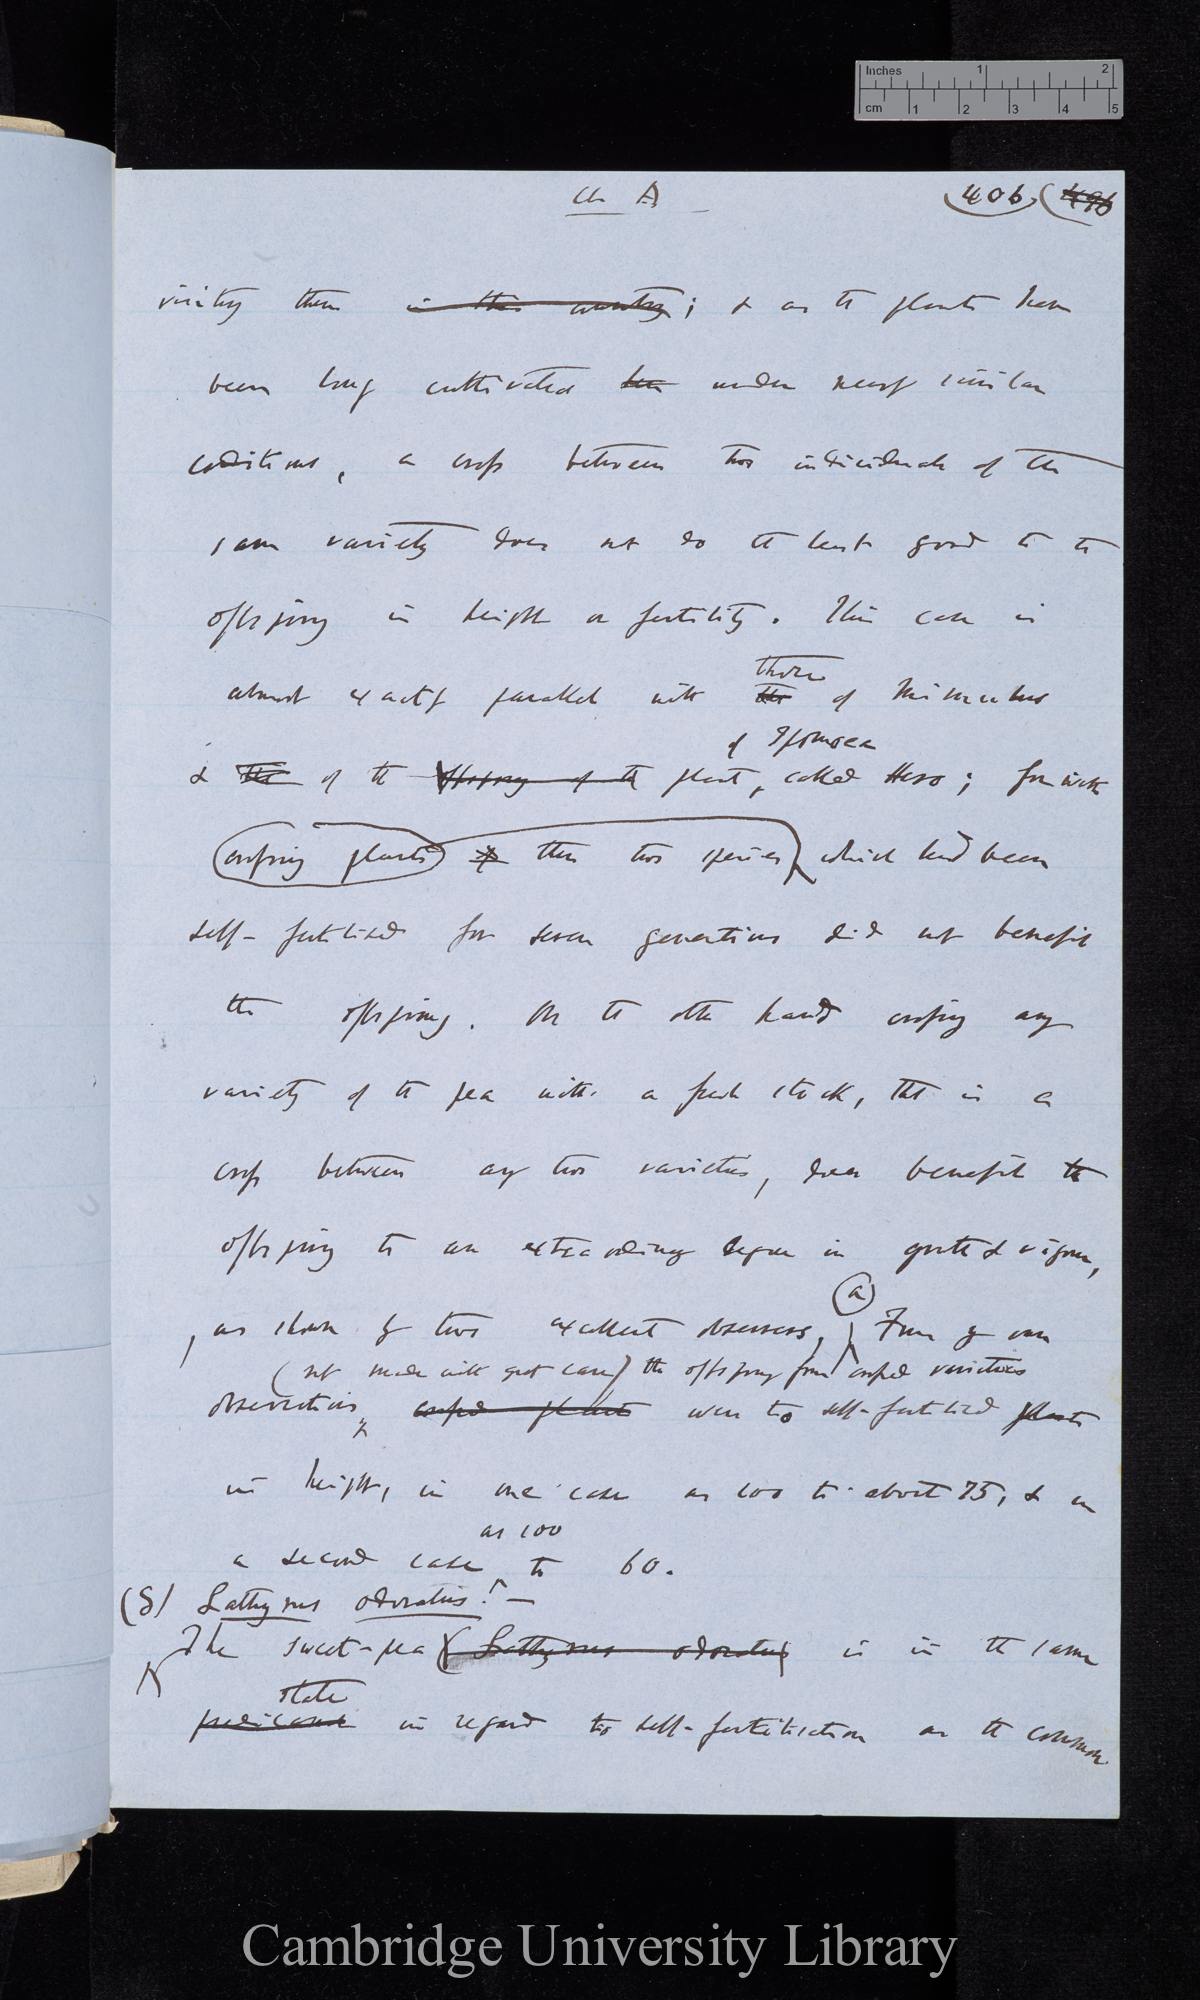 Inches 1 2
cm 1 2 3 4 5
Ch A
406 496
visiting them in this country; & as the plants have
been long cultivated been under nearly similar
conditions, a cross between two individuals of the
same variety does not do the least good to the
offspring in height or fertility. This case is
almost exactly parallel with the of Mimulus
those
of Ipomoea
& the of the offspring of the plant, called Hero; for with
crossing plants of these two species which had been
self-fertilised for seven generations did not benefit
the offspring. On the other hand crossing any
variety of the pea with a fresh stock, that is a
cross between any two varieties, does benefit the
offspring to an extraordinary degree in growth & vigour,
(a)
as shown by two excellent observers, From my own
(not made with great care) the offspring from crossed varieties
observations crossed plants were to self-fertilised plants
in height, in one case as 100 to about 75, & in
as 100
a second case to 60.
(8) Lathyrus odoratus. —
The sweet-pea (Lathyrus odoratus) is in the same
state
predicament in regard to self-fertilisation as the common
Cambridge University Library